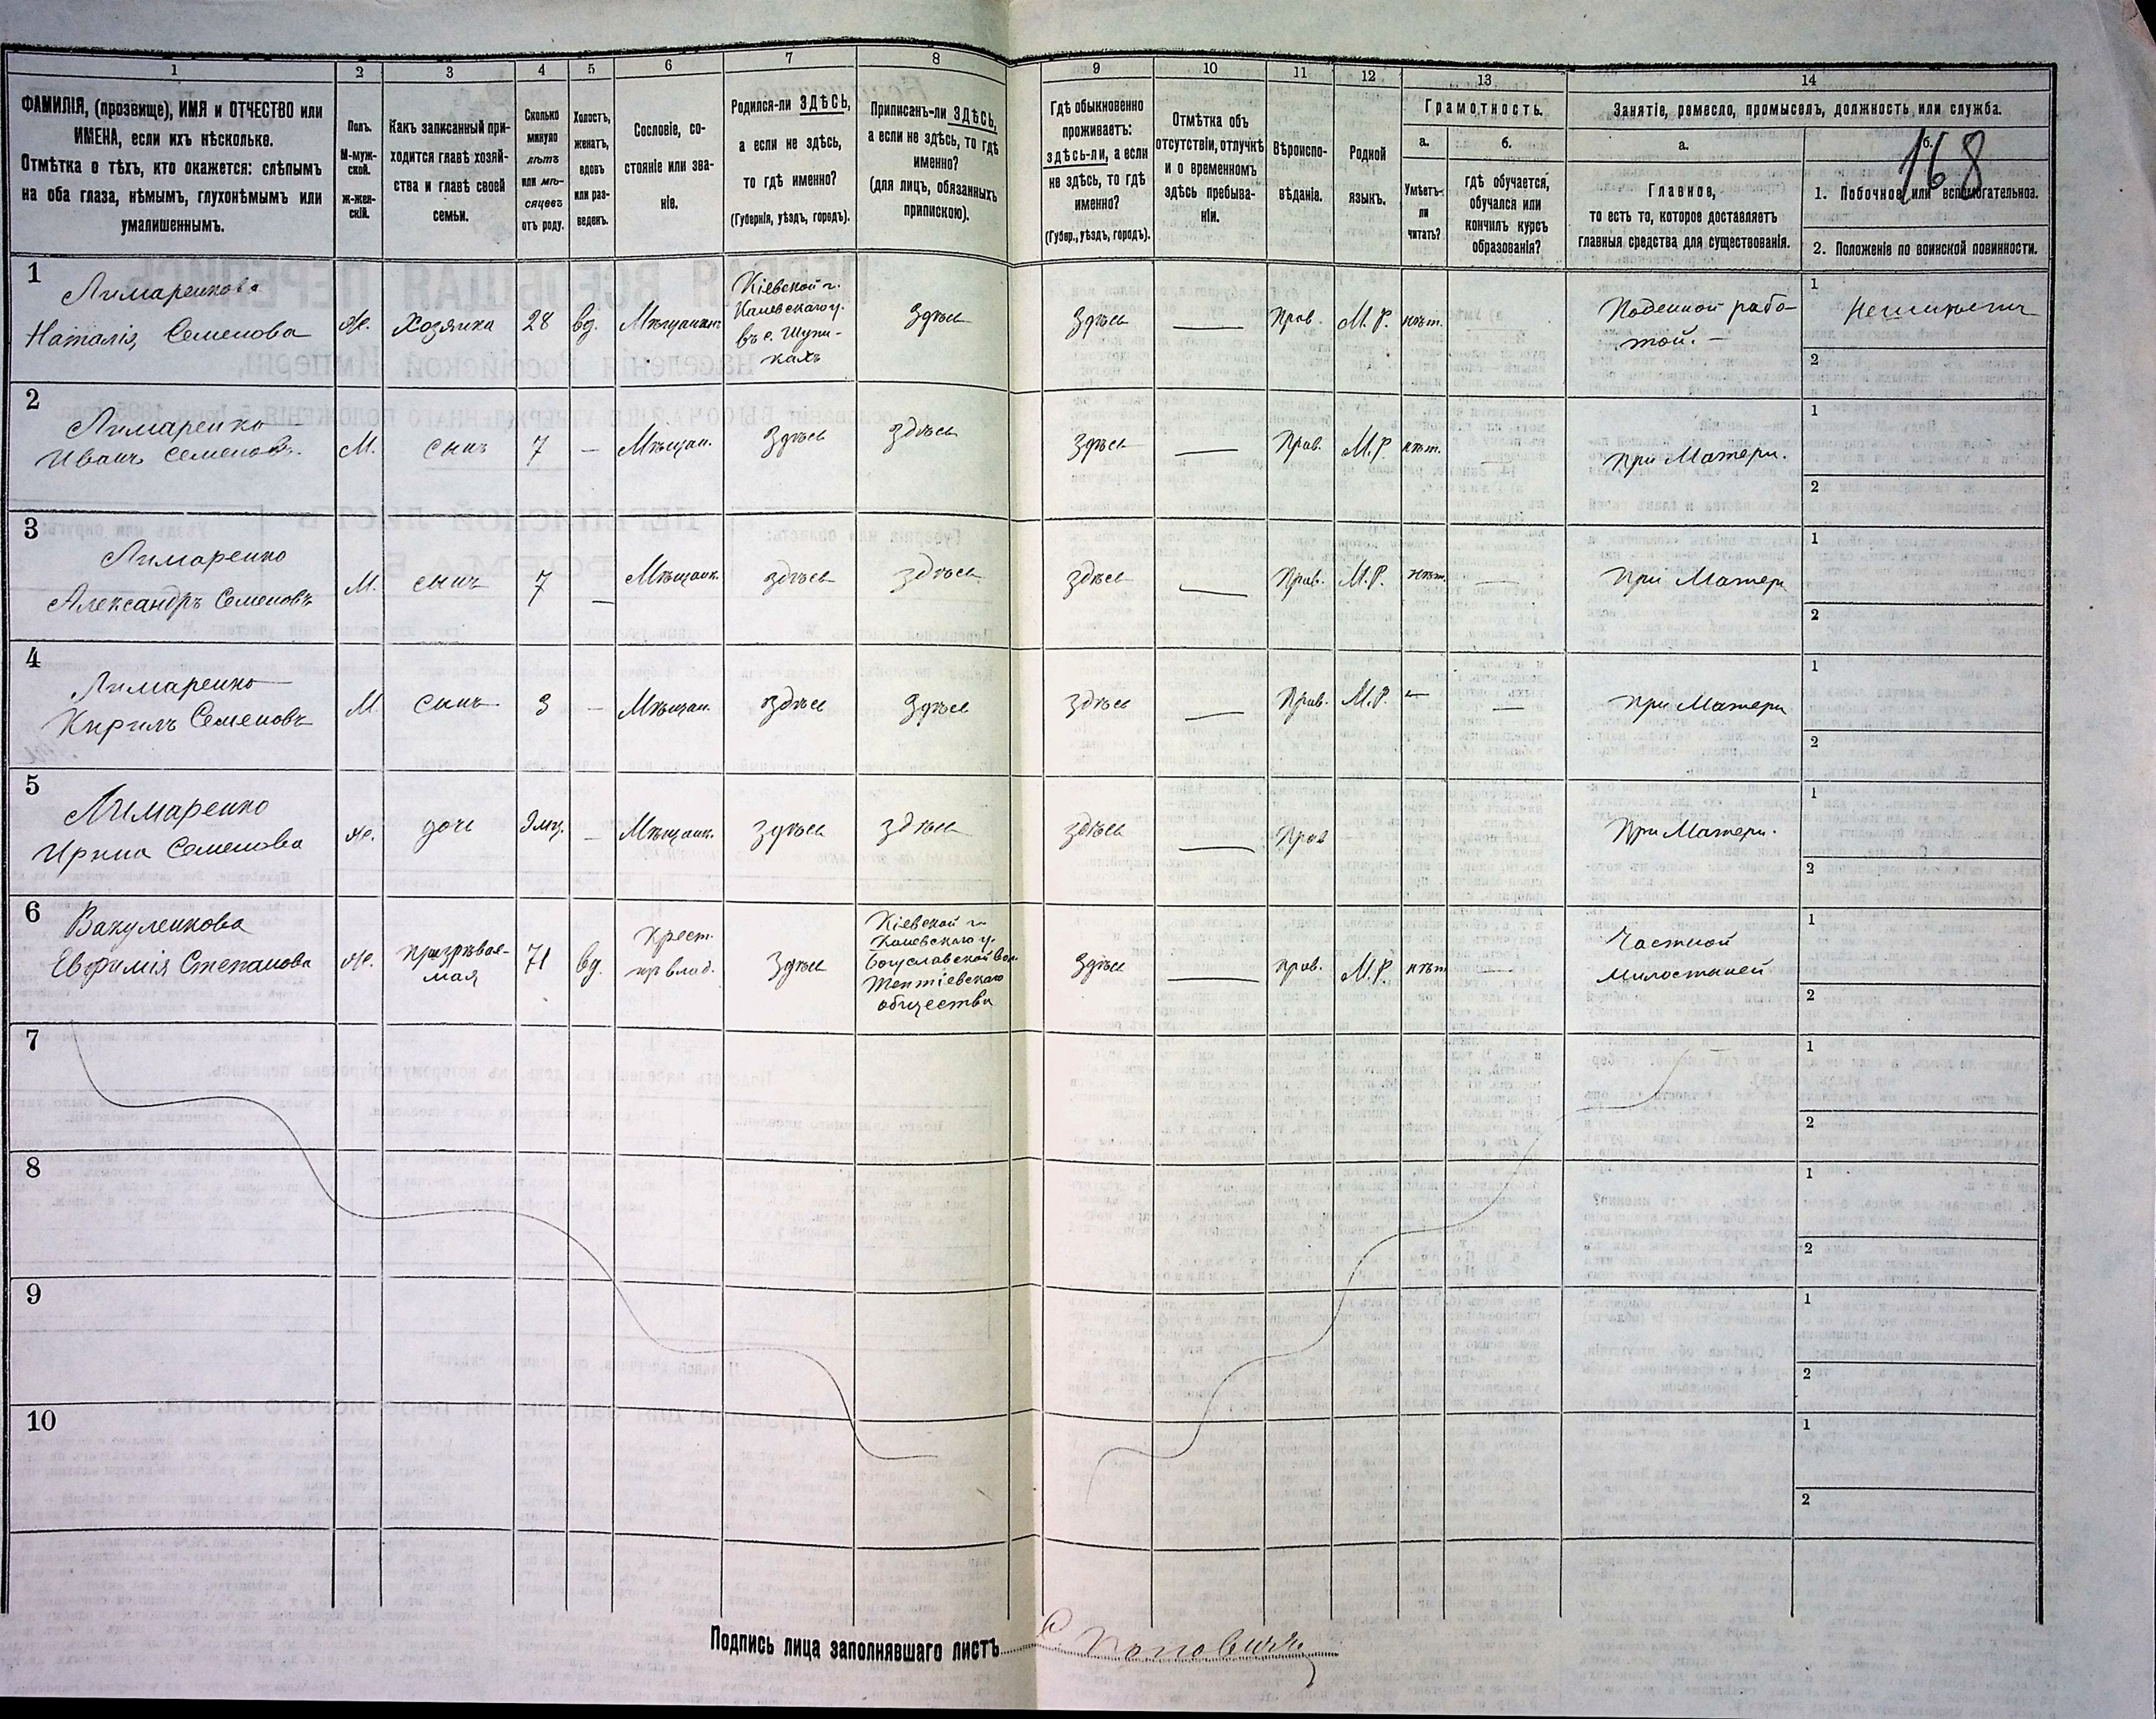 168
1 2 3 4 5 6 7 8 9 10 11 12 13 14
ФАМИЛІЯ, (прозвище), ИМЯ и ОТЧЕСТВО или
ИМЕНА, если ихъ нѣсколько.
Отмѣтка о тѣхъ, кто окажется: слѣпымъ
на оба глаза, нѣмымъ, глухонѣмымъ или
умалишеннымъ.
Полъ.
М-муж-
ской.
ж-жен-
скій.
Какъ записанный при-
ходится главѣ хозяй-
ства и главѣ своей
семьи.
Сколько
минуло
лѣтъ
или мѣ-
сяцевъ
отъ роду.
Холостъ,
женатъ,
вдовъ
или раз-
веденъ.
Сословіе, со-
стояніе или зва-
ніе.
Родился-ли ЗДѢСЬ,
а если не здѣсь,
то гдѣ именно?
(Губернія, уѣздъ, городъ).
Приписанъ-ли ЗДѢСЬ,
а если не здѣсь, то гдѣ
именно?
(для лицъ, обязанныхъ
припискою).
Гдѣ обыкновенно
проживаетъ:
здѣсь-ли, а если
не здѣсь, то гдѣ
именно?
(Губер., уѣздъ, городъ).
Отмѣтка объ
отсутствіи, отлучкѣ
и о временномъ
здѣсь пребыва-
ніи.
Вѣроиспо-
вѣданіе.
Родной
языкъ.
Грамотность.
а.
Умѣетъ-
ли
читать?
б.
гдѣ обучается,
обучался или
кончилъ курсъ
образованія?
Занятіе, ремесло, промыселъ, должность или служба.
а.
Главное,
то есть то, которое доставляетъ
главныя средства для существованія.
б.
1. Побочное или вспомогательное.
2. Положеніе по воинской повинности.
1
Лимаренкова
Наталія Семенова
ж.
Хозяйка
28
вд.
Мѣщанка
Кіевской г.
Каневскаго у.
въ с. Шупи-
кахъ
Здѣсь
Здѣсь
—
Прав.
М. Р.
нѣт.
Поденной рабо-
той. —
1
2
2
Лимаренко
Иванъ Семеновъ.
М.
сынъ
7
—
Мѣщан.
Здѣсь
здѣсь
Здѣсь
—
Прав.
М. Р.
нѣт.
—
При Матери.
1
2
3
Лимаренко
Александръ Семеновъ
М.
сынъ
7
—
Мѣщанк.
здѣсь
здѣсь
здѣсь
—
Прав.
М. Р.
нѣт.
—
При Матери
1
2
4
Лимаренко
Кирилъ Семеновъ
М
Сынъ
3
—
Мѣщан.
здѣсь
Здѣсь
здѣсь
—
Прав.
М. Р.
—
—
При Матери
1
2
5
Лимаренко
Ирина Семенова
ж.
дочь
9 мц.
—
Мѣщанк.
здѣсь
здѣсь
здѣсь
—
Прав
При Матери.
1
2
6
Вакуленкова
Евфимія Степанова
ж.
призрѣвае-
мая
71
вд.
Крест.
пр влад.
Здѣсь
Кіевской г.
Каневскаго у.
Богуславской вол.
Тептіевскаго
общества
Здѣсь
—
прав.
М. Р.
нѣт
—
Частной
милостыней
1
2
7
1
2
8
1
2
9
1
2
10
1
2
Подпись лица заполнявшаго листъ